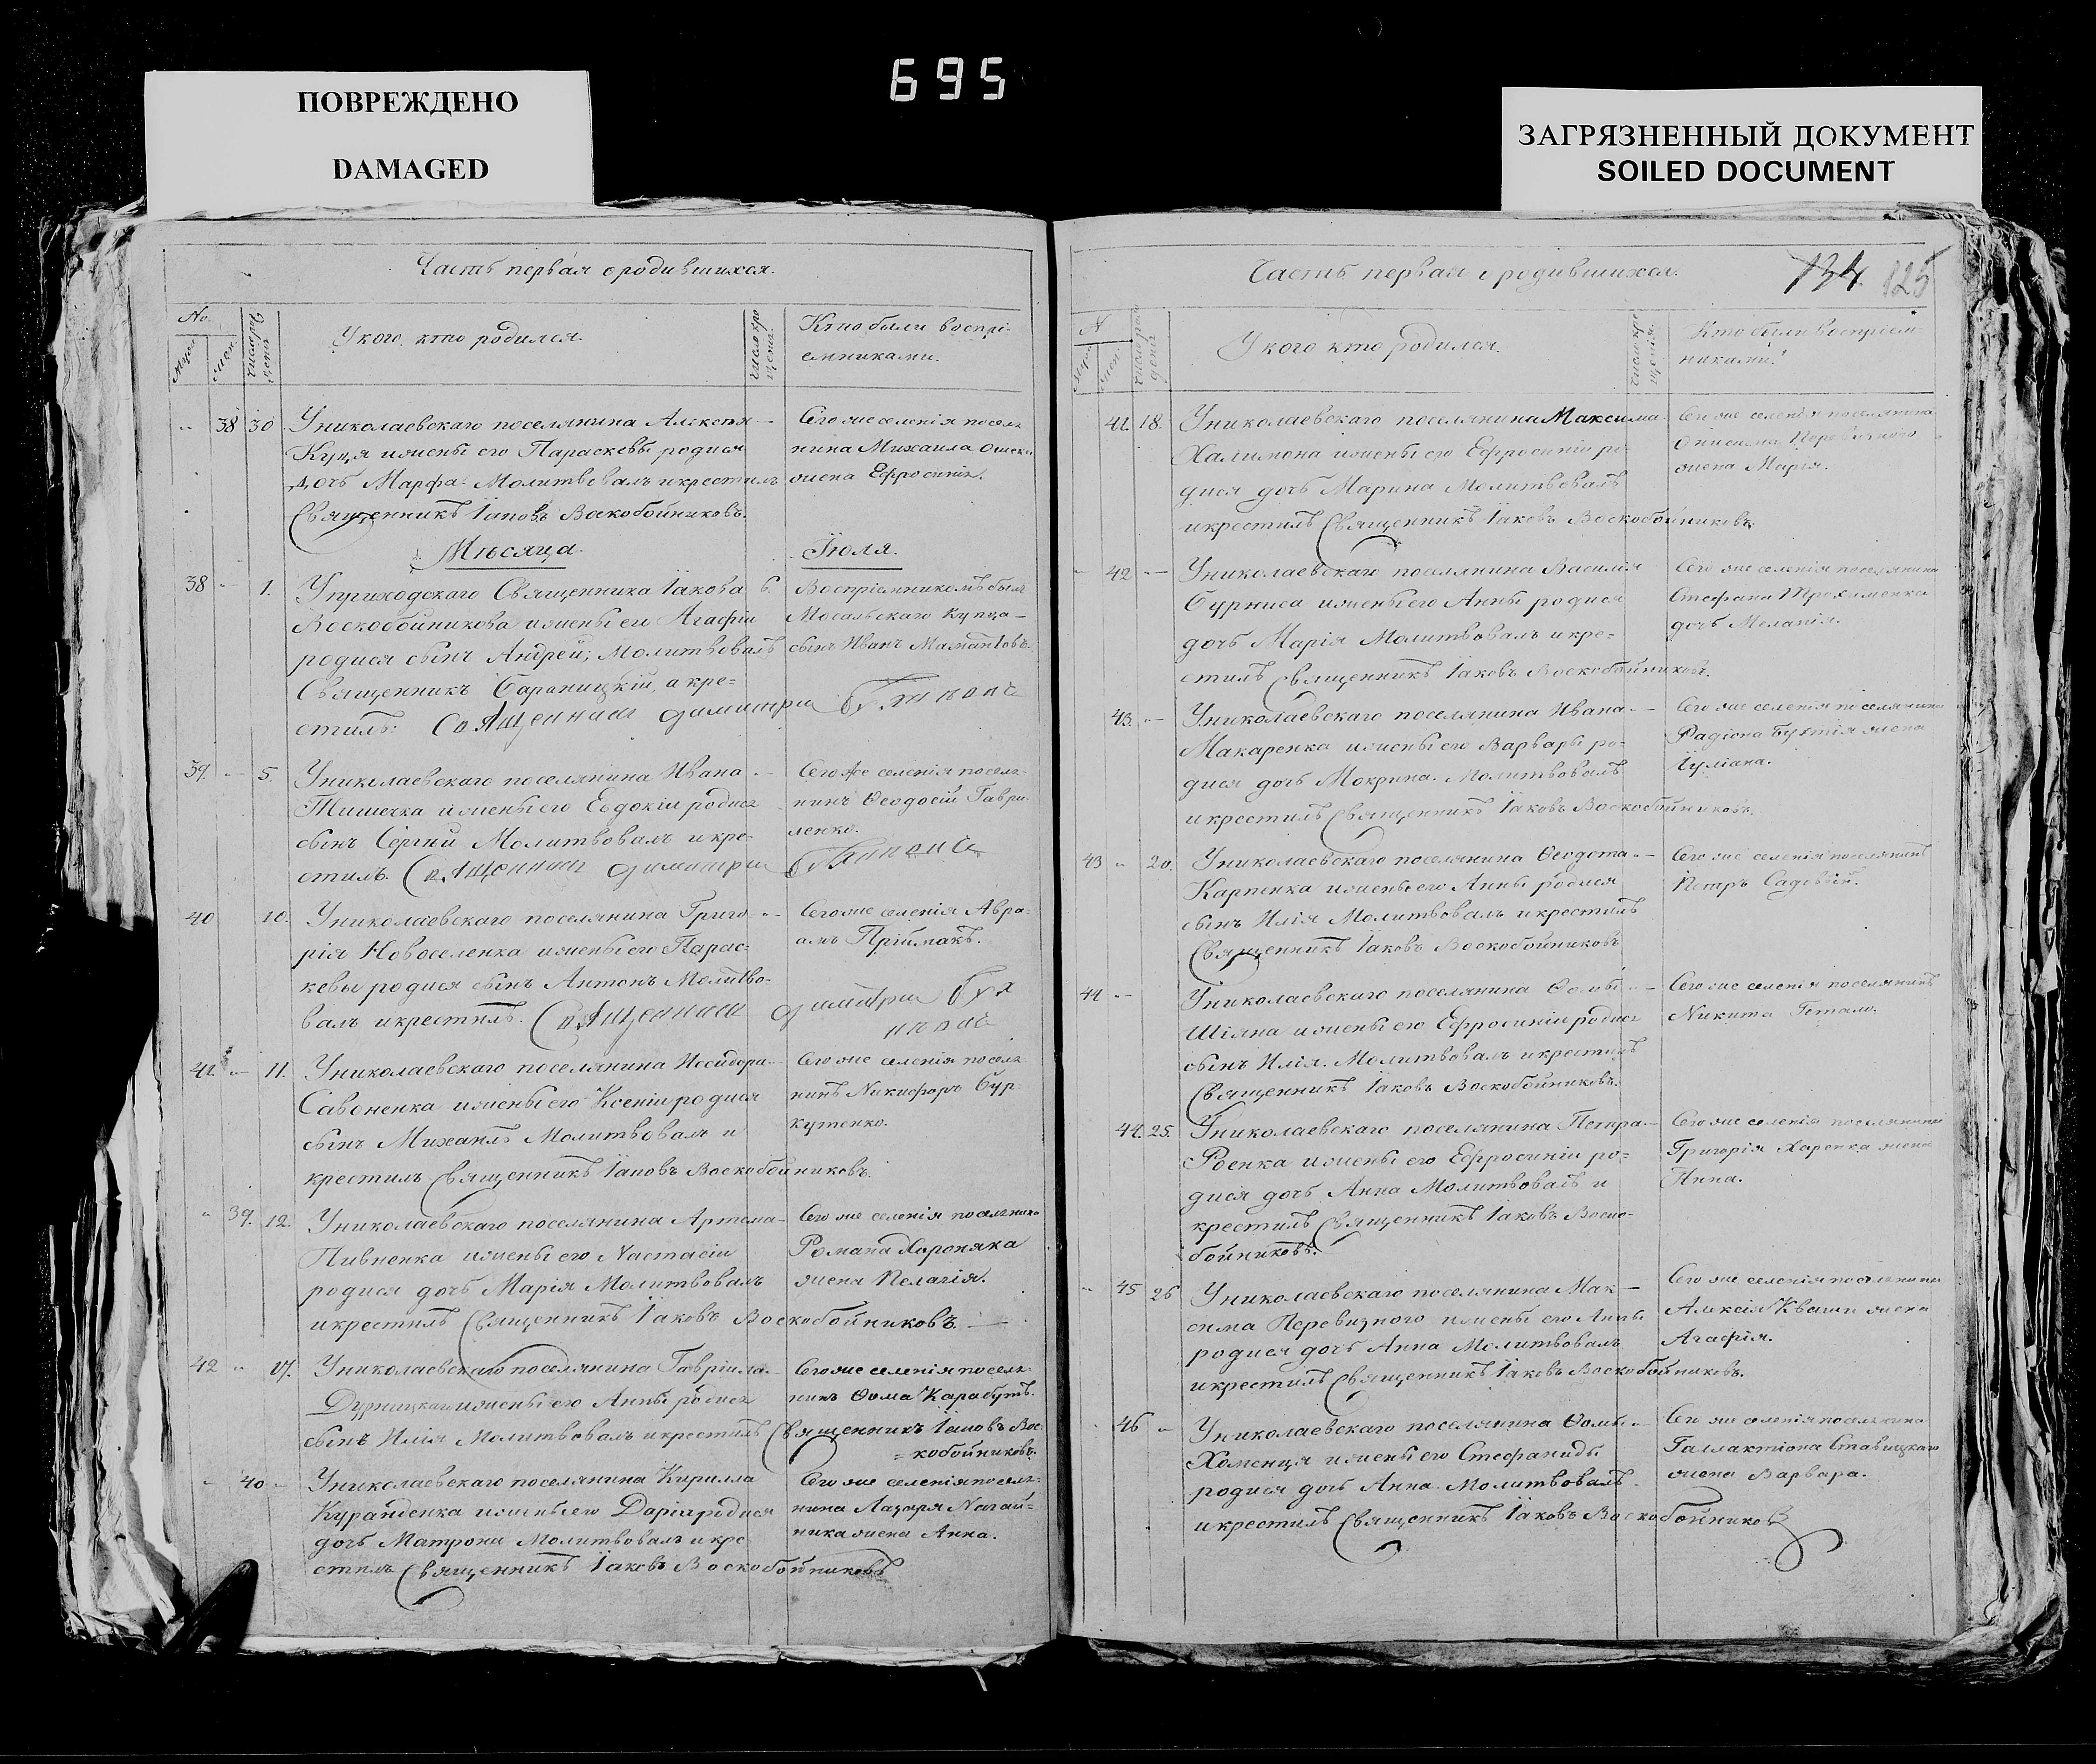 695
ПОВРЕЖДЕНО
DAMAGED
ЗАГРЯЗНЕННЫЙ ДОКУМЕНТ
SOILED DOCUMENT
Часть первая о родившихся.
No.
У кого кто родился.
Кто были воспрі-
емниками.
38 30 У николаевскаго поселянина Алексѣя
Куця и жены его Параскевы родися
дочь Марфа. Молитвовалъ и крестилъ
Священникъ Іаковъ Воскобойниковъ.
Сего же селенія поселя
нина Михаила
жена Ефросинія.
Мѣсяца Іюля.
38 1. У приходскаго Священника Іакова 6.
Воскобойникова и жены его Агафіи
родися сынъ Андрей; Молитвовалъ
Священникъ Бараницкій, а кре-
стилъ: Священникъ Димитрій
Воспріемникомъ былъ
Мосальскаго купца
сынъ Иванъ Мамантовъ.
39. 5. У николаевскаго поселянина Ивана
Тишечка и жены его Евдокіи родися
сынъ Сергій Молитвовалъ и кре-
стилъ. Священникъ Димитрій
Сего же селенія поселя-
нинъ Ѳеодосій Гаври-
ленко.
40 10. У николаевскаго поселянина Григо-
рія Новоселенка и жены его Парас-
кевы родися сынъ Антонъ Молитво-
валъ и крестилъ. Священникъ Димитрій
Сего же селенія Авра-
амъ Пріймакъ.
41. 11. У николаевскаго поселянина Исидора
Савоненка и жены его Ксеніи родися
сынъ Михаилъ Молитвовалъ и
крестилъ Священникъ Іаковъ Воскобойниковъ.
Сего же селенія поселя-
нинъ Никифоръ Бур-
кутенко.
39. 12. У николаевскаго поселянина Артема
Пивненка и жены его Настасіи
родися дочь Марія Молитвовалъ
и крестилъ Священникъ Іаковъ Воскобойниковъ.
Сего же селенія поселянина
Романа Хороняка
жена Пелагія.
42 17. У николаевскаго поселянина Гавріила
и жены его Анны родися
сынъ Илія Молитвовалъ и крестилъ Священникъ Іаковъ Вос-
кобойниковъ.
Сего же селенія поселя-
нинъ Ѳома Карабутъ.
40 У николаевскаго поселянина Кирилла
и жены его Даріи родися
дочь Матрона Молитвовалъ и кре
стилъ Священникъ Іаковъ Воскобойниковъ
Сего же селенія поселя-
нина Лазаря Нагай-
ника жена Анна.
Часть первая о родившихся.
134 125
N
У кого кто родился.
Кто были воспріем-
никами.
41. 18. У николаевскаго поселянина Максима
Халимона и жены его Ефросиніи ро-
дися дочь Марина Молитвовалъ
и крестилъ Священникъ Іаковъ Воскобойниковъ.
Сего же селенія поселянина
Онисима Перевизного
жена Марія.
42 У николаевскаго поселянина Василія
Бурниса и жены его Анны родися
дочь Марія Молитвовалъ и кре-
стилъ Священникъ Іаковъ Воскобойниковъ.
Сего же селенія поселянина
Стефана Трохименка
дочь Меланія.
43. У николаевскаго поселянина Ивана
Макаренка и жены его Варвары ро-
дися дочь Мокрина. Молитвовалъ
и крестилъ Священникъ Іаковъ Воскобойниковъ.
Сего же селенія поселянина
Радіона жена
Іуліана.
43 20. У николаевскаго поселянина Ѳеодота
Карпенка и жены его Анны родися
сынъ Илія Молитвовалъ и крестилъ
Священникъ Іаковъ Воскобойниковъ
Сего же селенія поселянинъ
Петръ Садовый.
44 У николаевскаго поселянина Ѳомы
Шіяна и жены его Ефросиніи родися
сынъ Илія. Молитвовалъ и крестилъ
Священникъ Іаковъ Воскобойниковъ.
Сего же селенія поселянинъ
Никита
44. 25. У николаевскаго поселянина Петра
Роенка и жены его Ефросиніи ро-
дися дочь Анна Молитвовалъ и
крестилъ Священникъ Іаковъ Воско-
бойниковъ.
Сего же селенія поселянина
Григорія Харенка жена
Анна.
45 26 У николаевскаго поселянина Мак-
сима Перевизного и жены его Анны
родися дочь Анна Молитвовалъ
и крестилъ Священникъ Іаковъ Воскобойниковъ.
Сего же селенія поселянина
Алексія Кваши жена
Агафія.
46 У николаевскаго поселянина Ѳомы
Хоменця и жены его Стефаниды
родися дочь Анна Молитвовалъ
и крестилъ Священникъ Іаковъ Воскобойниковъ
Сего же селенія поселянина
Галактіона Ставицкаго
жена Варвара.